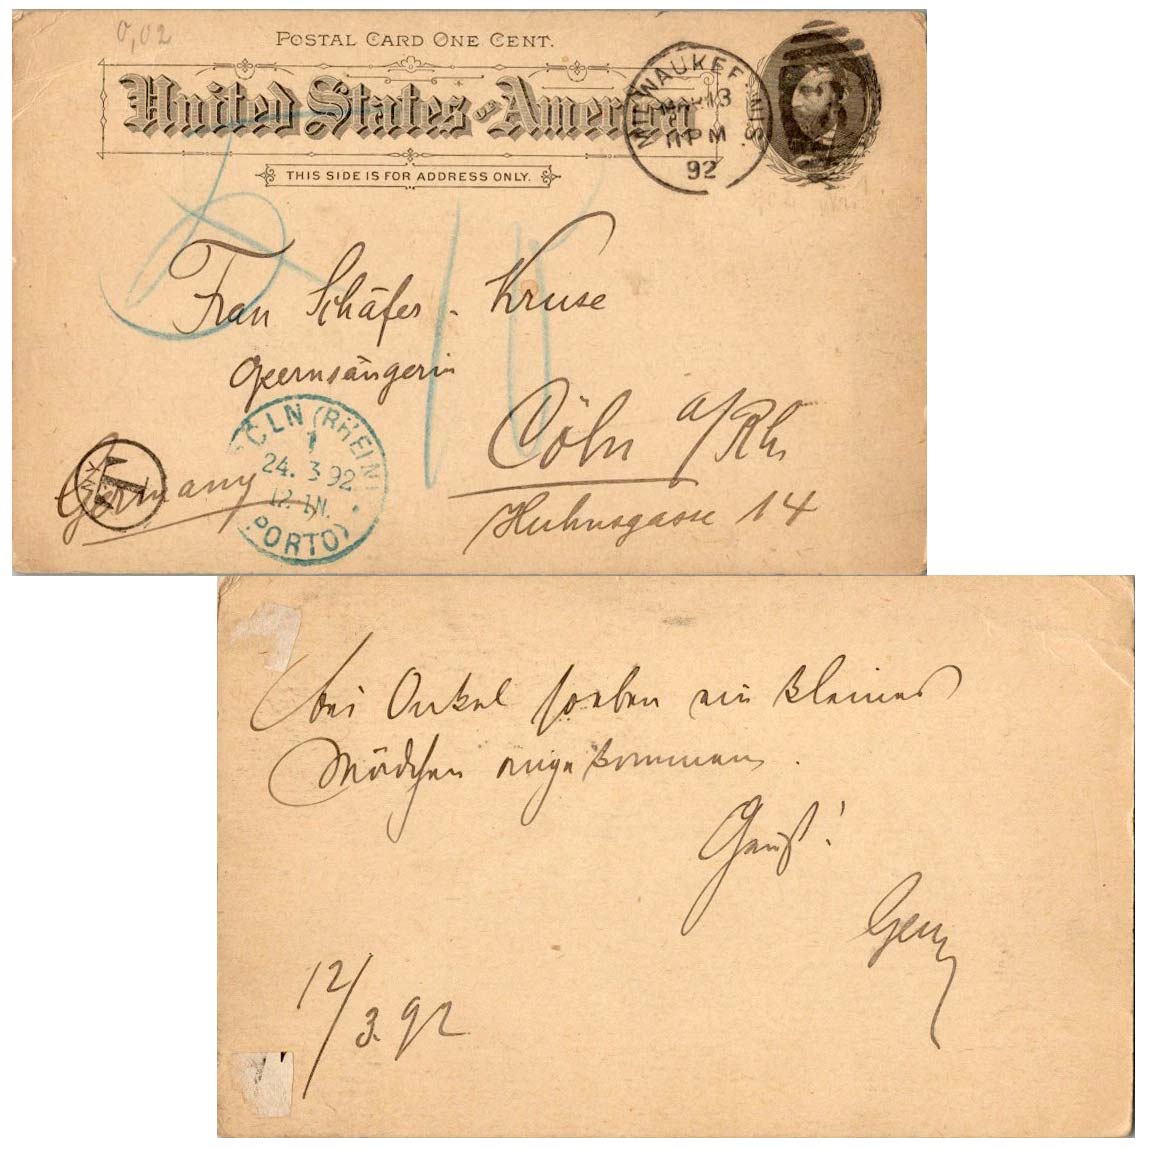 0,02
POSTAL CARD ONE CENT.
United States of America
THIS SIDE IS FOR ADDRESS ONLY.
MILWAUKEE, WIS.
MAR 13
11 PM
92
Frau Schäfer - Kruse
Opernsängerin
Cöln a/Rh
Huhnsgasse 14
Germany
T
CÖLN (RHEIN)
1
24. 3 92
12-1N.
(PORTO)
10
bei Onkel soeben ein kleines
Mädchen angekommen.
12/3. 92